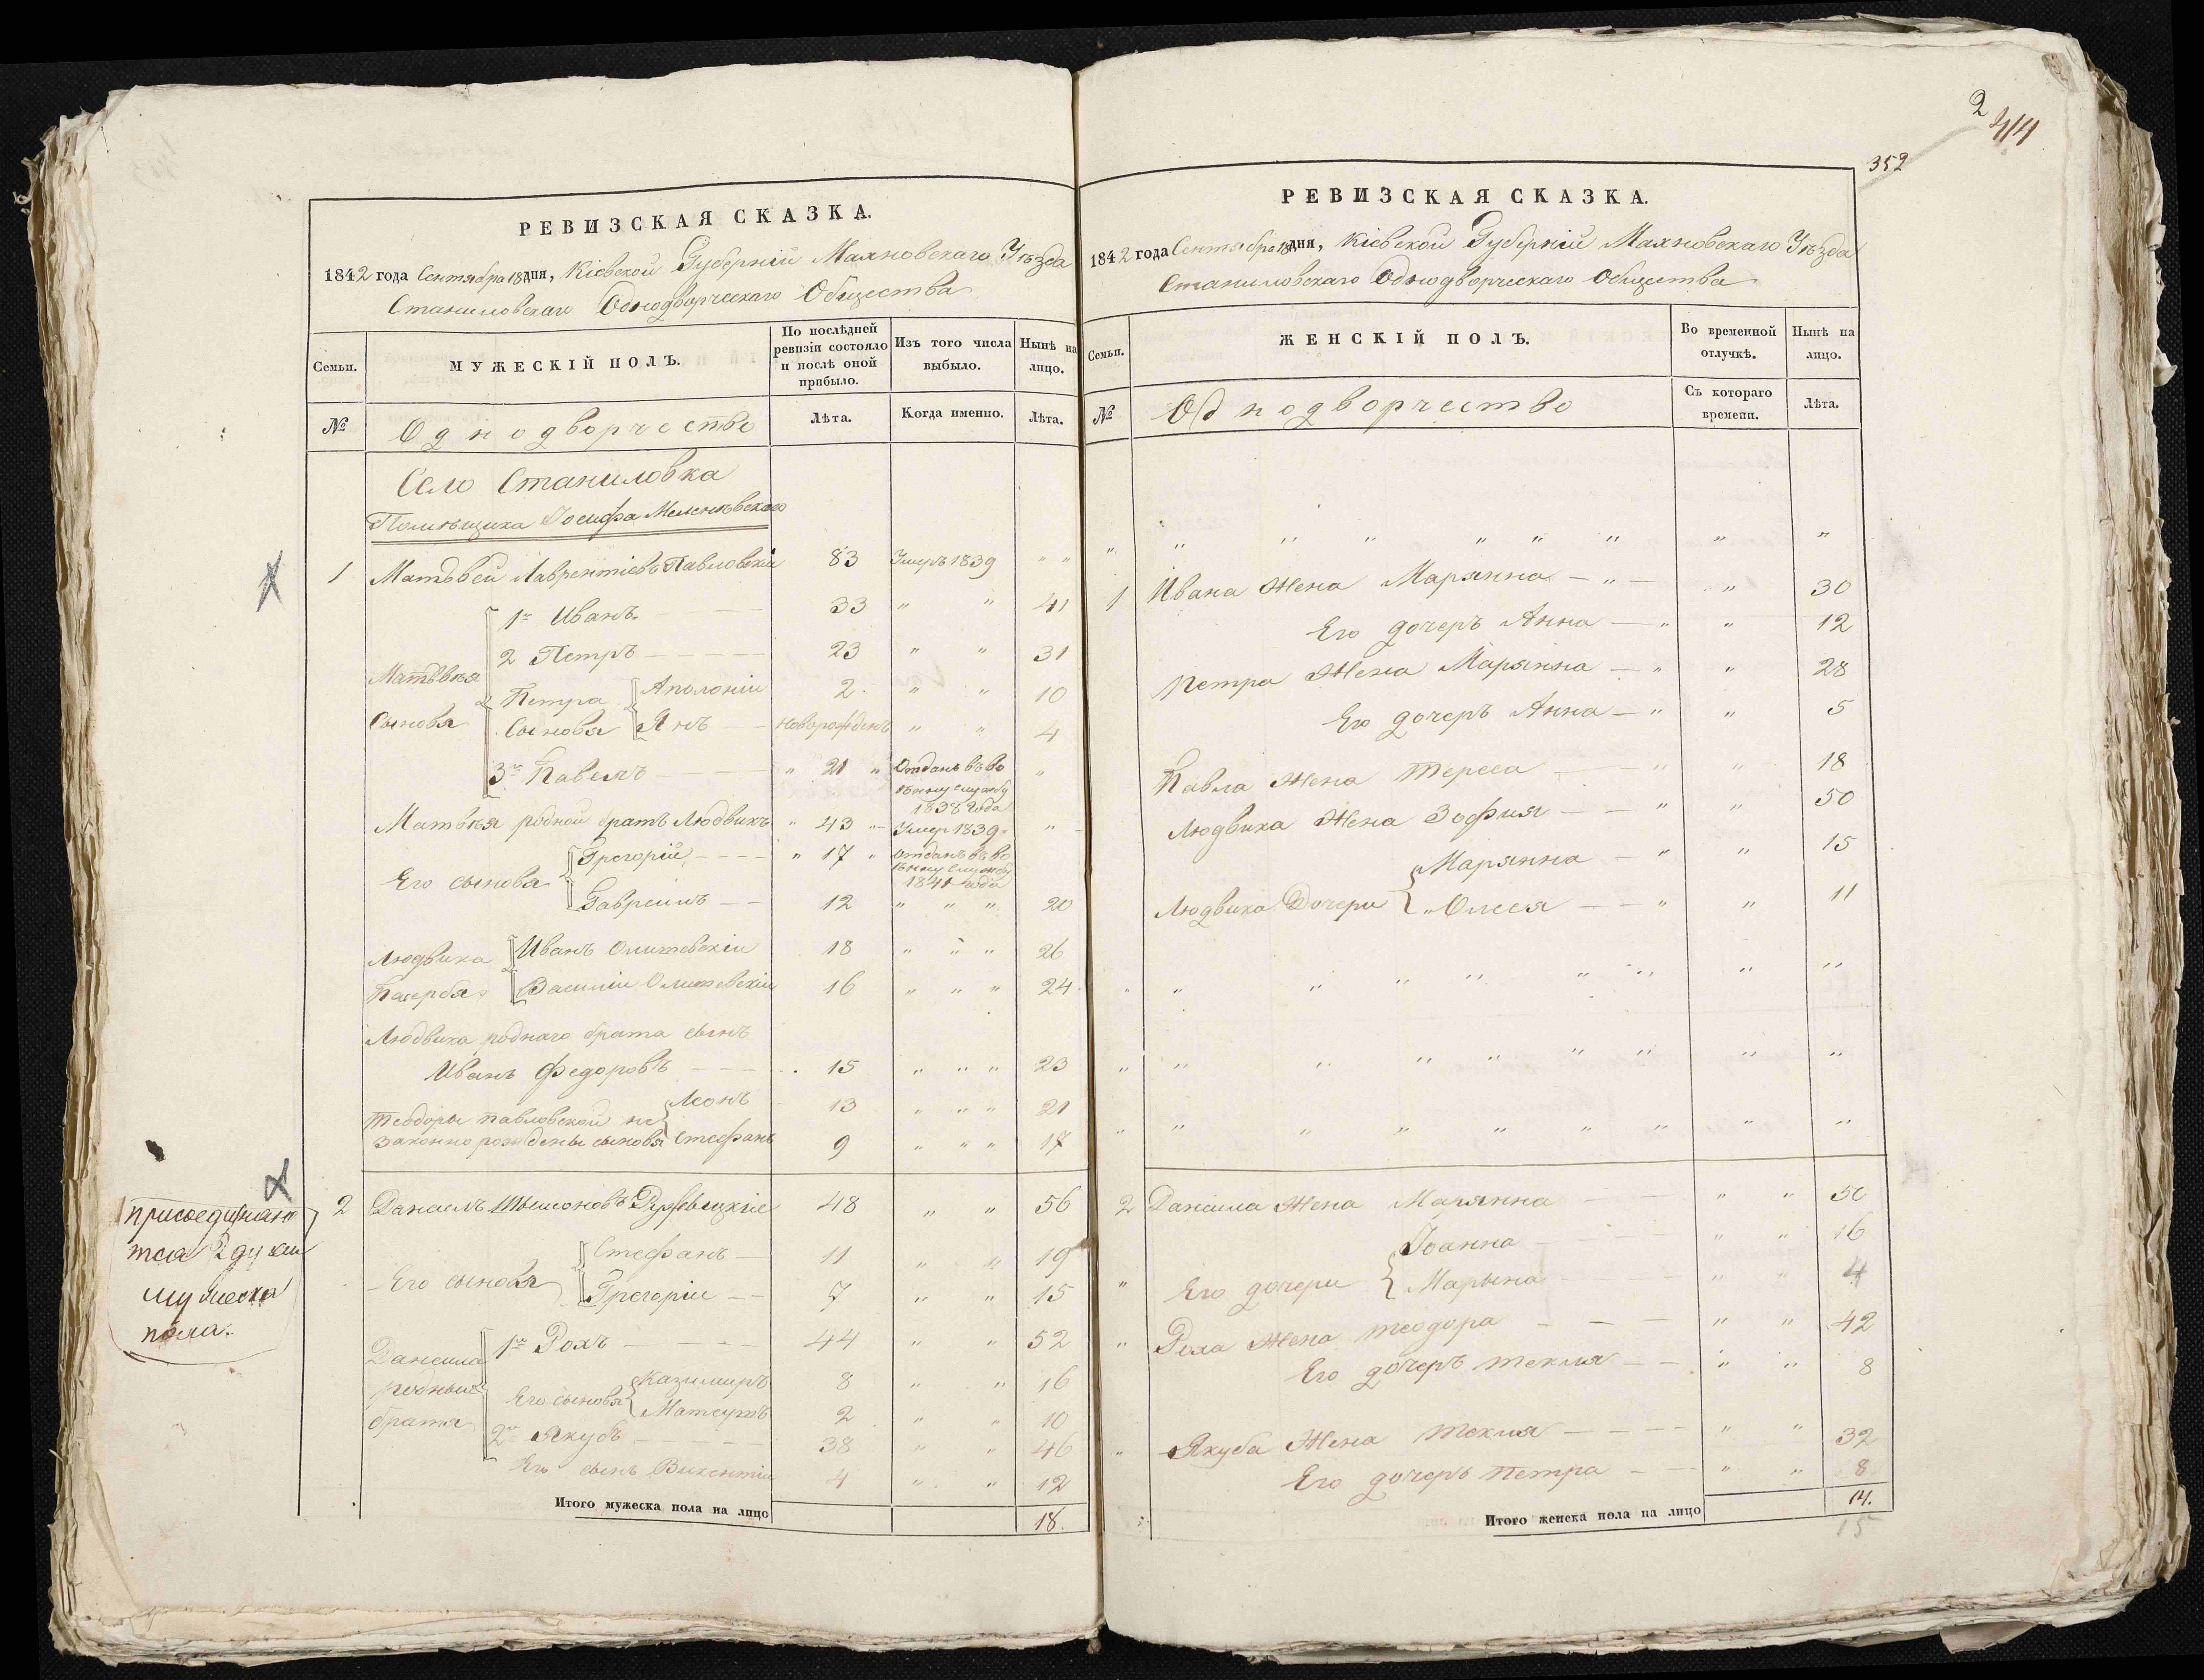 РЕВИЗСКАЯ СКАЗКА.
1842 года Сентября 18 дня, Кіевской Губерніи Махновскаго Уѣзда
Станиловскаго Однодворческаго Общества
Семьи.
МУЖЕСКІЙ ПОЛЪ.
По послѣдней ревизіи состояло и послѣ оной прибыло.
Изъ того числа выбыло.
Нынѣ на лицо.
№
Однодворчество
Лѣта.
Когда именно.
Лѣта.
Село Станиловка
Помѣщика Іосифа
1 Матвѣй Лаврентіевъ Павловскій 83 Умеръ 1839 " "
1й Иванъ 33 " " 41
2 Петръ 23 " " 31
Матвѣя
Сыновя
Петра Аполоніи 2 " " 10
Сыновя Янъ новорожденъ " " 4
3й Павелъ " 21 " Отданъ въ во
енну службу
1838 года "
Матвѣя родной братъ Людвикъ " 43 " Умер 1839 "
Его сыновя Грегорій " 17 " Отданъ въ во
енну службу
1841 года
Гавреилъ 12 " " " 20
Людвика Иванъ 18 " " " 26
Пасербя Василій 16 " " " 24
Людвика роднаго брата сынъ
Иванъ Федоровъ 15 " " " 23
Теодоры Павловской не Леонъ 13 " " " 21
законно рождены сыновя Стефанъ 9 " " " 17
присоединяют
тся 2 души
мужеска
пола.
2 Данеилъ 48 " " 56
Его сыновя Стефанъ 11 " " 19
Грегоріи 7 " " 15
Данеила
родные
братя
1й Рохъ 44 " " 52
Его сыновя Казимиръ 8 " " 16
Матеушъ 2 " " 10
2й Якубъ 38 " " 46
Его сынъ Викентіи 4 " " 12
Итого мужеска пола на лицо 18.
2
414
352
РЕВИЗСКАЯ СКАЗКА.
1842 года Сентября 18 дня, Кіевской Губерніи Махновскаго Уѣзда
Станиловскаго Однодворческаго Общества
Семьи.
ЖЕНСКІЙ ПОЛЪ.
Во временной отлучкѣ.
Нынѣ на лицо.
№
Однодворчество
Съ котораго времени.
Лѣта.
" " " " " " " " "
1 Ивана Жена Марянна " " 30
Его дочеръ Анна " " 12
Петра Жена Марянна " " 28
Его дочеръ Анна " " 5
Павла Жена Тереса " " 18
Людвика Жена Зофия " " 50
Марянна " " 15
Людвика Дочери " Олеся " " 11
" " " " " " " "
" " " " " " " " "
" " " " " " " " "
2 Данеила Жена Марянна " " 50
Іоанна " " 16
" Его дочери Марьяна " " 4
" Роха Жена Теодора " " 42
Его дочеръ Текля " " 8
" Якуба Жена Текля " " 32
Его дочеръ Петра " " 8
Итого женска пола на лицо 14.
15